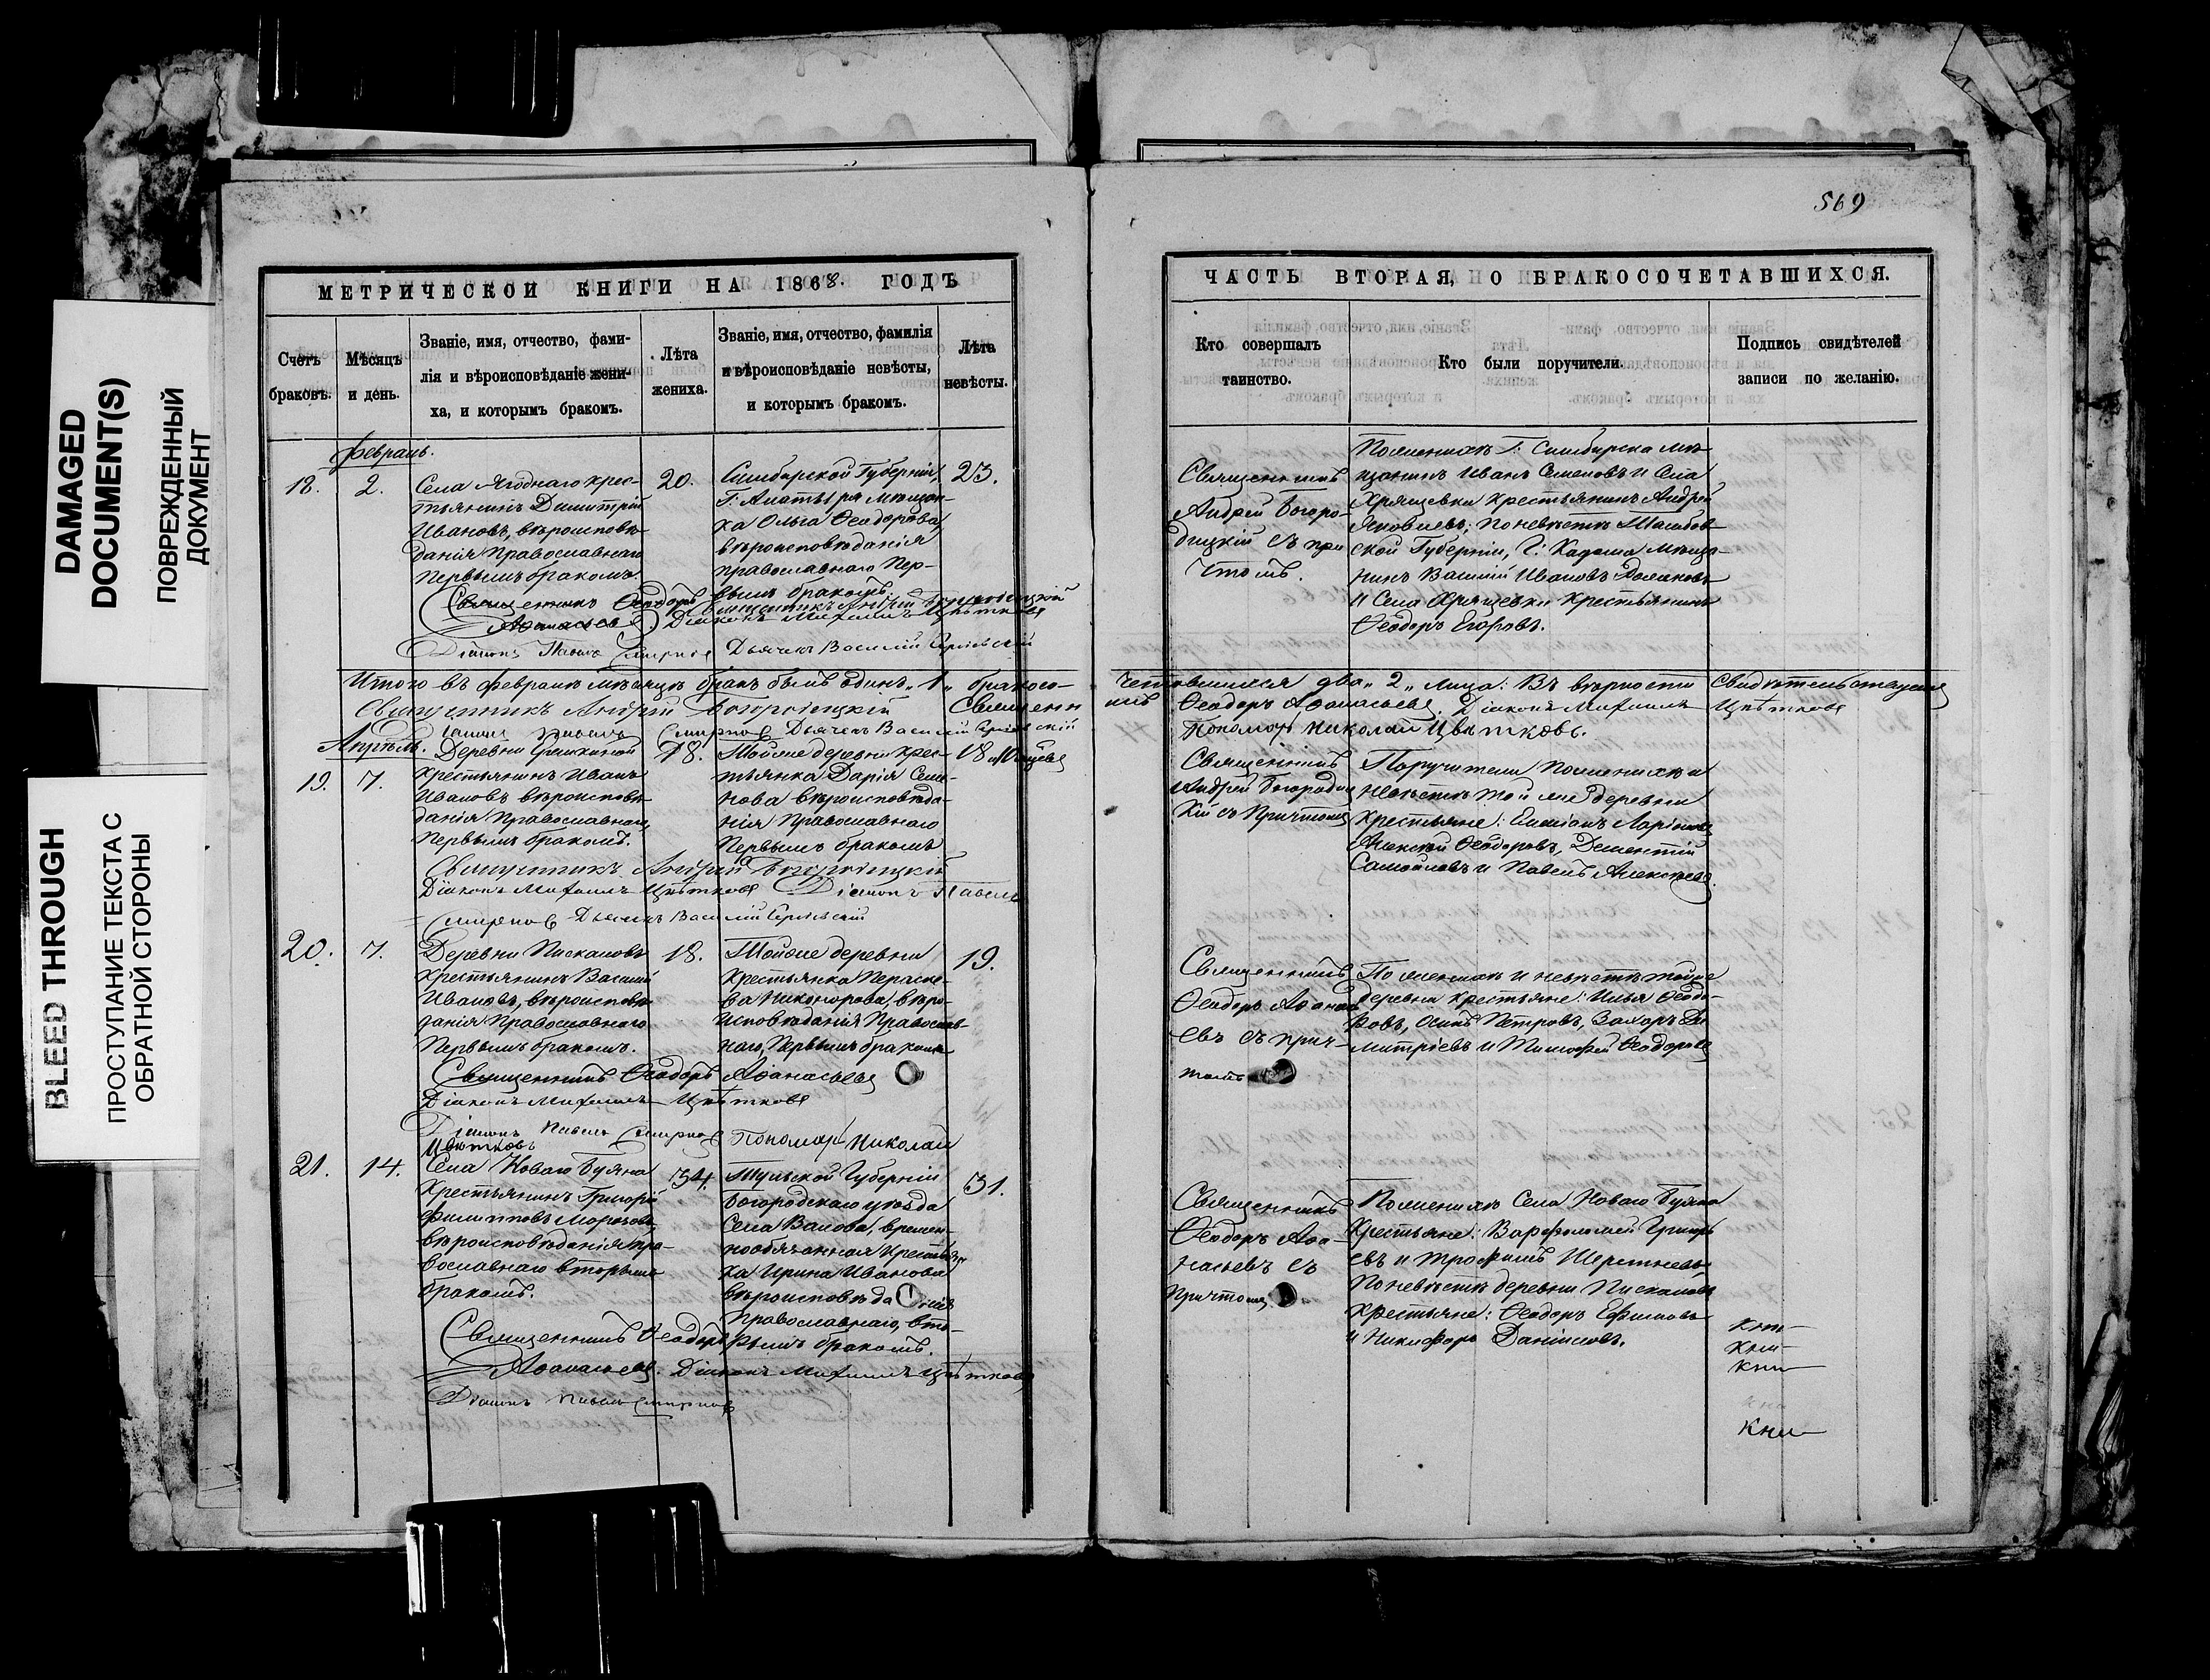 DAMAGED
DOCUMENT(S)
ПОВРЕЖДЕННЫЙ
ДОКУМЕНТ
BLEED THROUGH
ПРОСТУПАНИЕ ТЕКСТА С
ОБРАТНОЙ СТОРОНЫ
МЕТРИЧЕСКОЙ КНИГИ НА 1868. ГОДЪ
Счетъ
браковъ.
Мѣсяцъ
и день.
Званіе, имя, отчество, фами-
лія и вѣроисповѣданіе жени-
ха, и которымъ бракомъ.
Лѣта
жениха.
Званіе, имя, отчество, фамилія
и вѣроисповѣданіе невѣсты,
и которымъ бракомъ.
Лѣта
невѣсты.
Февраль.
18.
2.
Села Ягоднаго крес-
тьянинъ Димитрій
Ивановъ, вѣроисповѣ-
данія Православнаго
Первымъ бракомъ.
20.
Симбирской Губерніи,
Г. Алатыря мѣщан-
ка Ольга Ѳеодорова,
вѣроисповѣданія
православнаго Пер-
вымъ бракомъ.
23.
Священникъ Ѳеодоръ
Аѳанасьевъ
Священникъ Андрей Богородицкій
Діаконъ Михаилъ Цвѣтковъ
Діаконъ Павелъ Смирновъ Дьячекъ Василій
Итого въ Февралѣ мѣсяцѣ бракъ былъ одинъ „1„ бракосо-
Священникъ Андрей Богородицкій Священн
Павелъ Смирновъ Дьячекъ Василій
Апрѣль.
19.
7.
Деревни
крестьянинъ Иванъ
Ивановъ вѣроисповѣ-
данія Православнаго,
Первымъ бракомъ.
18.
Тойже деревни крес-
тьянка Дарія Семе-
нова вѣроисповѣда-
нія Православнаго
Первымъ бракомъ.
18
Священникъ Андрей Богородицкій
Діаконъ Михаилъ Цвѣтковъ Діаконъ Павелъ
Смирновъ Дьячекъ Василій
20.
7.
Деревни Пискаловъ
крестьянинъ Василій
Ивановъ, вѣроисповѣ-
данія Православнаго
Первымъ бракомъ.
18.
Тойже деревни
крестьянка Параске-
ва Никонорова, вѣро-
исповѣданія Православ-
наго, Первымъ бракомъ
19.
Священникъ Ѳеодоръ Аѳанасьевъ
Діаконъ Михаилъ Цвѣтковъ
Діаконъ Павелъ Смирновъ Пономарь Николай
Цвѣтковъ
21.
14.
Села Новаго Буяна
Крестьянинъ Григорій
Филипповъ Морозовъ,
вѣроисповѣданія пра-
вославнаго вторымъ
бракомъ.
34.
Тульской Губерніи
Богородскаго уѣзда
Села Валова, времен-
нообязанная крестьян-
ка Ирина Иванова
вѣроисповѣданія
Православнаго, вто-
рымъ бракомъ.
31.
Священникъ Ѳеодоръ
Аѳанасьевъ. Діаконъ Михаилъ Цвѣтковъ
Діаконъ Павелъ Смирновъ
569
ЧАСТЬ ВТОРАЯ, О БРАКОСОЧЕТАВШИХСЯ.
Кто совершалъ
таинство.
Кто были поручители.
Подпись свидѣтелей
записи по желанію.
Священникъ
Андрей Богоро-
дицкій съ при
чтомъ.
По женихѣ Г. Симбирска мѣ-
щанинъ Иванъ Семеновъ и Села
Хрящевки Крестьянинъ Андрей
Яковлевъ; по невѣстѣ Тамбов-
ской Губерніи, Г. Кадома мѣща-
нинъ Василій Ивановъ
и Села Хрящевки Крестьянинъ
Ѳеодоръ Егоровъ.
четавшихся два „2„ лица: Въ вѣрности свидѣтельствуемъ
икъ Ѳеодоръ Аѳанасьевъ. Діаконъ Михаилъ Цвѣтковъ
Пономарь Николай Цвѣтковъ.
Священникъ
Андрей Богородиц
кій съ Причтомъ
Поручители по женихѣ и
невѣстѣ той же деревни
крестьяне:
Алексѣй Ѳеодоровъ, Дементій
Самойловъ и Павелъ Алексѣевъ.
Священникъ
Ѳеодоръ Аѳанась
евъ съ прич-
томъ
По женихѣ и невѣстѣ тойже
деревни крестьяне: Илья Ѳеодо-
ровъ, Осипъ Петровъ, Захаръ Ди
митріевъ и Тимофей Ѳеодоровъ
Священникъ
Ѳеодоръ Аѳа-
насьевъ съ
Причтомъ
По женихѣ Села Новаго Буяна
Крестьяне: Варфоломей Григорь
евъ и Трофимъ Шереметевъ,
По невѣстѣ деревни Пискаловъ
крестьяне: Ѳеодоръ Ефимовъ
и Никифоръ Даниловъ.
Кни
Кни
Кни
Кни